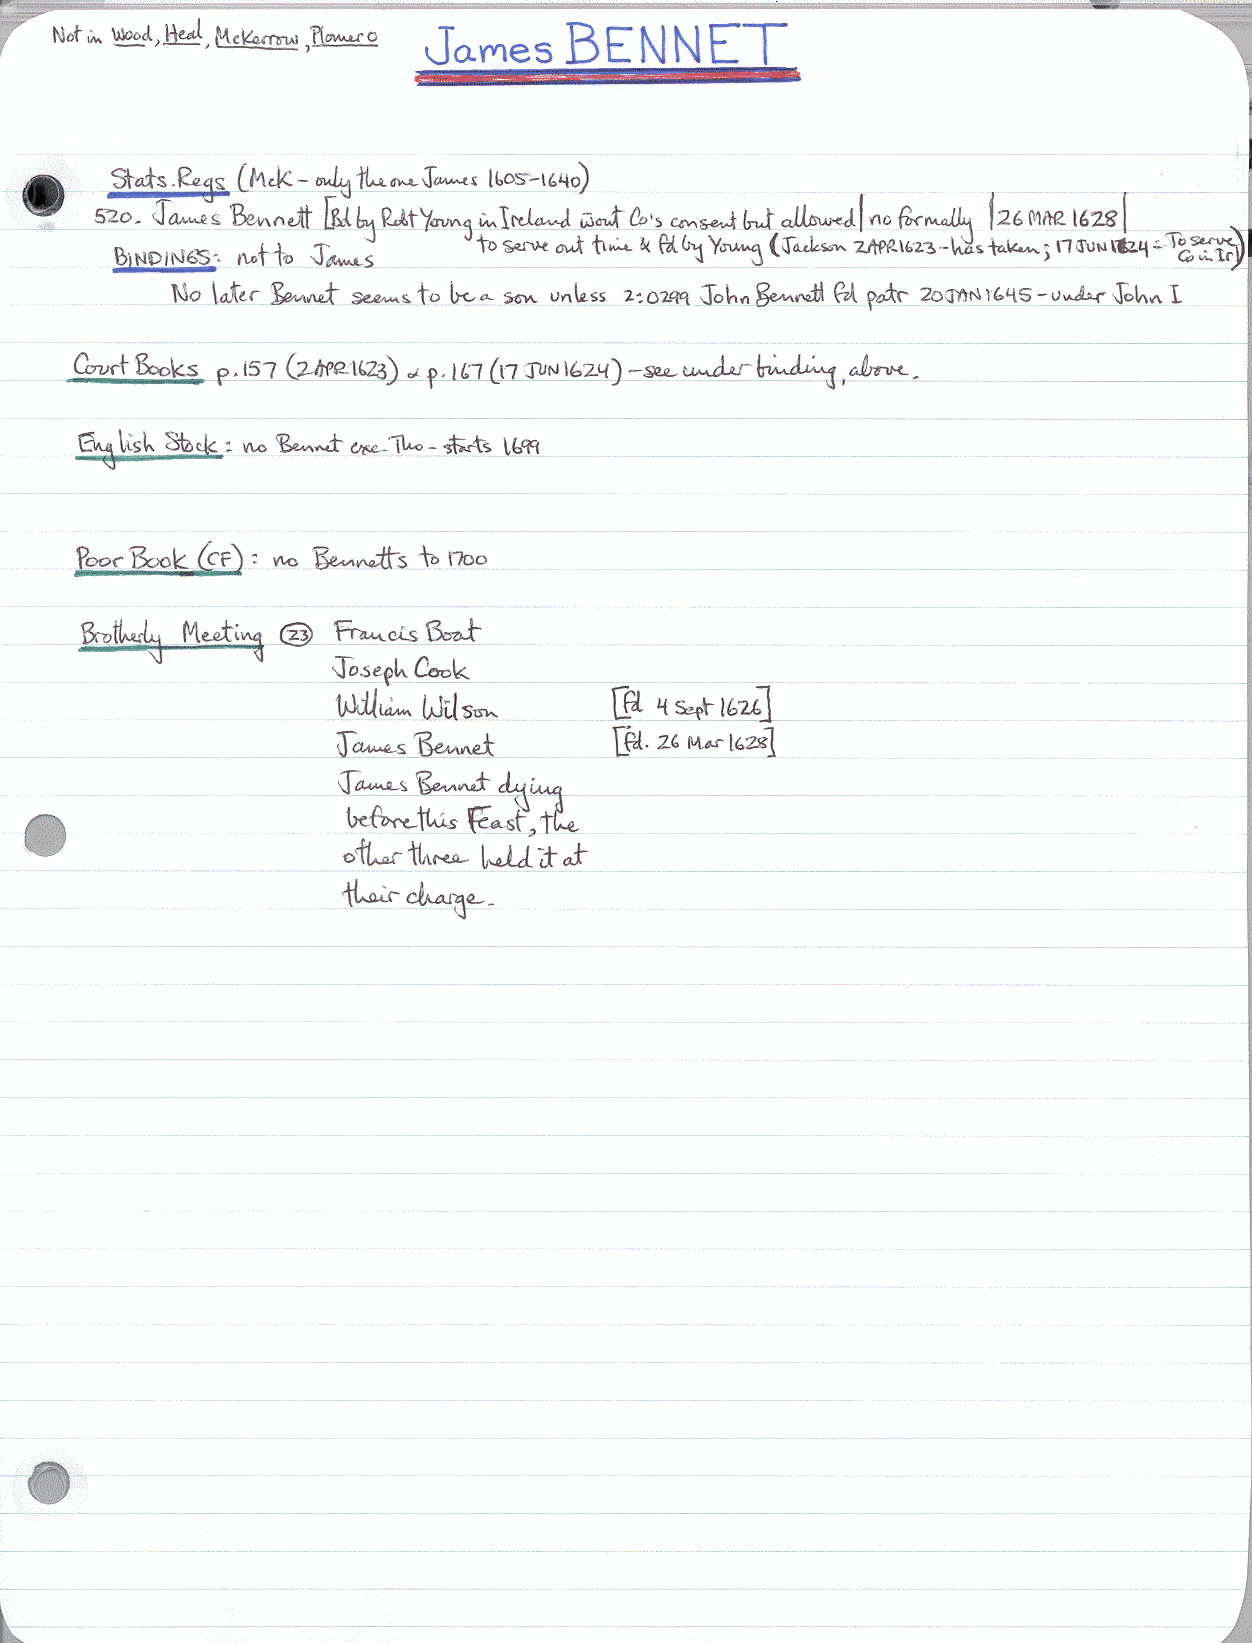 Not in Wood, Heal, McKerrow, Plomer
James BENNET
Stats. Regs (McK - only the one James 1605-1640)
520. James Bennett [Bd by Robt Young in Ireland wout Co's consent but allowed | no formally | 26 MAR 1628 |
to serve out time & fd by Young (Jackson 2 APR 1623 - has taken; 17 JUN 1624 = To serve Co in Ir)
BINDINGS: not to James
No later Bennet seems to be a son unless 2:0299 John Bennett fd patr 20 JAN 1645 - under John I
Court Books p. 157 (2 APR 1623) & p. 167 (17 JUN 1624) - see under binding, above.
English Stock: no Bennet exc. Tho - starts 1699
Poor Book (CF): no Bennetts to 1700
Brotherly Meeting 23 Francis Boat
Joseph Cook
William Wilson [fd 4 Sept 1626]
James Bennet [fd. 26 Mar 1628]
James Bennet dying
before this Feast, the
other three held it at
their charge.